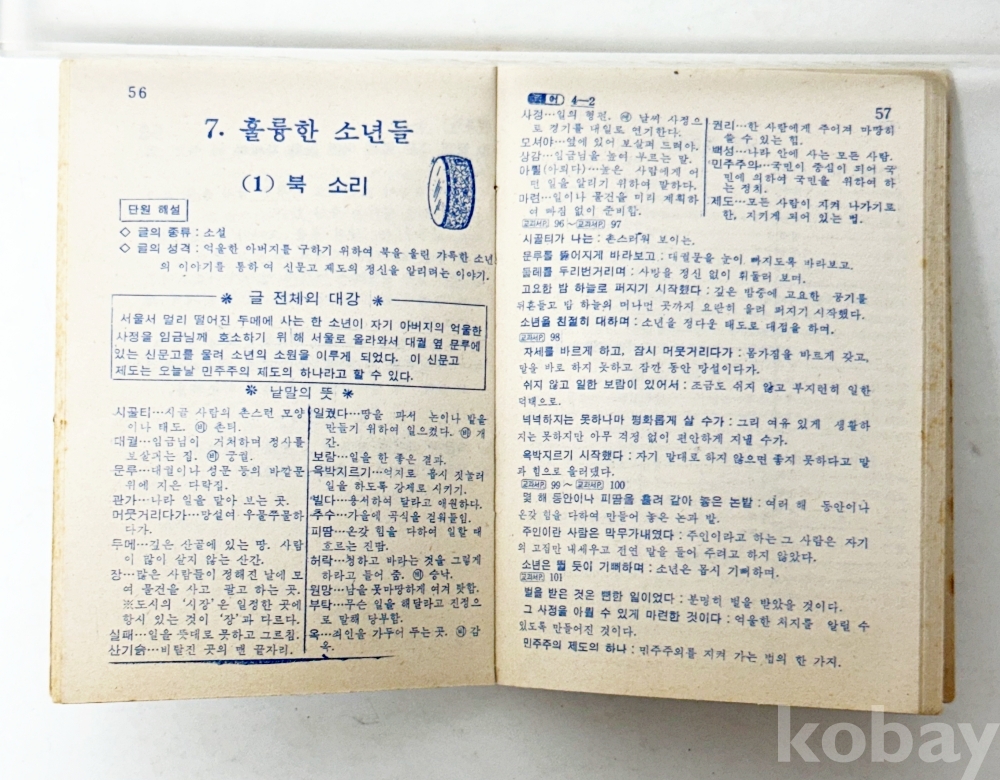 56
7. 훌륭한 소년들
(1) 북 소리
단원 해설
◇ 글의 종류 : 소설
◇ 글의 성격 : 억울한 아버지를 구하기 위하여 북을 울린 갸륵한 소년
의 이야기를 통하여 신문고 제도의 정신을 알리려는 이야기.
※ 글 전체의 대강 ※
서울서 멀리 떨어진 두메에 사는 한 소년이 자기 아버지의 억울한
사정을 임금님께 호소하기 위해 서울로 올라와서 대궐 옆 문루에
있는 신문고를 울려 소년의 소원을 이루게 되었다. 이 신문고
제도는 오늘날 민주주의 제도의 하나라고 할 수 있다.
※ 낱말의 뜻 ※
시골티…시골 사람의 촌스런 모양
이나 태도. ㉥ 촌티.
대궐…임금님이 거처하며 정사를
보살피는 집. ㉥ 궁궐.
문루…대궐이나 성문 등의 바깥문
위에 지은 다락집.
관가…나라 일을 맡아 보는 곳.
머뭇거리다가…망설여 우물쭈물하
다가.
두메…깊은 산골에 있는 땅. 사람
이 많이 살지 않는 산간.
장…많은 사람들이 정해진 날에 모
여 물건을 사고 팔고 하는 곳.
※도시의 '시장'은 일정한 곳에
항시 있는 것이 '장'과 다르다.
실패…일을 뜻대로 못하고 그르침.
산기슭…비탈진 곳의 맨 끝자리.
일궜다…땅을 파서 논이나 밭을
만들기 위하여 일으켰다. ㉥ 개
간.
보람…일을 한 좋은 결과.
윽박지르기…억지로 몹시 짓눌러
일을 하도록 강제로 시키기.
빌다…용서하여 달라고 애원하다.
추수…가을에 곡식을 걷워들임.
피땀…온갖 힘을 다하여 일할 때
흐르는 진땀.
허락…청하고 바라는 것을 그렇게
하라고 들어 줌. ㉥ 승낙.
원망…남을 못마땅하게 여겨 탓함.
부탁…무슨 일을 해달라고 진정으
로 말해 당부함.
옥…죄인을 가두어 두는 곳. ㉥ 감
옥.
국어 4—2
57
사정…일의 형편. ㉠ 날씨 사정으
로 경기를 내일로 연기한다.
모셔야…옆에 있어 보살펴 드려야.
상감…임금님을 높여 부르는 말.
아뢸(아뢰다)…높은 사람에게 어
떤 일을 알리기 위하여 말하다.
마련…일이나 물건을 미리 계획하
여 빠짐 없이 준비함.
권리…한 사람에게 주어져 마땅히
쓸 수 있는 힘.
백성…나라 안에 사는 모든 사람.
민주주의…국민이 중심이 되어 국
민에 의하여 국민을 위하여 하
는 정치.
제도…모든 사람이 지켜 나가기로
한, 지키게 되어 있는 법.
교과서P 96～교과서P 97
시골티가 나는 : 촌스러워 보이는.
문루를 뚫어지게 바라보고 : 대궐문을 눈이 빠지도록 바라보고.
둘레를 두리번거리며 : 사방을 정신 없이 휘둘러 보며.
고요한 밤 하늘로 퍼지기 시작했다 : 깊은 밤중에 고요한 공기를
뒤흔들고 밤 하늘의 머나먼 곳까지 요란히 울려 퍼지기 시작했다.
소년을 친절히 대하며 : 소년을 정다운 태도로 대접을 하며.
교과서P 98
자세를 바르게 하고, 잠시 머뭇거리다가 : 몸가짐을 바르게 갖고,
말을 바로 하지 못하고 잠깐 동안 망설이다가.
쉬지 않고 일한 보람이 있어서 : 조금도 쉬지 않고 부지런히 일한
덕택으로.
넉넉하지는 못하나마 평화롭게 살 수가 : 그리 여유 있게 생활하
지는 못하지만 아무 걱정 없이 편안하게 지낼 수가.
윽박지르기 시작했다 : 자기 말대로 하지 않으면 좋지 못하다고 말
과 힘으로 울러댔다.
교과서P 99～교과서P 100
몇 해 동안이나 피땀을 흘려 갈아 놓은 논밭 : 여러 해 동안이나
온갖 힘을 다하여 만들어 놓은 논과 밭.
주인이란 사람은 막무가내였다 : 주인이라고 하는 그 사람은 자기
의 고집만 내세우고 전연 말을 들어 주려고 하지 않았다.
소년은 뛸 듯이 기뻐하며 : 소년은 몹시 기뻐하며.
교과서P 101
벌을 받은 것은 뻔한 일이었다 : 분명히 벌을 받았을 것이다.
그 사정을 아뢸 수 있게 마련한 것이다 : 억울한 처지를 알릴 수
있도록 만들어진 것이다.
민주주의 제도의 하나 : 민주주의를 지켜 가는 법의 한 가지.
kobay